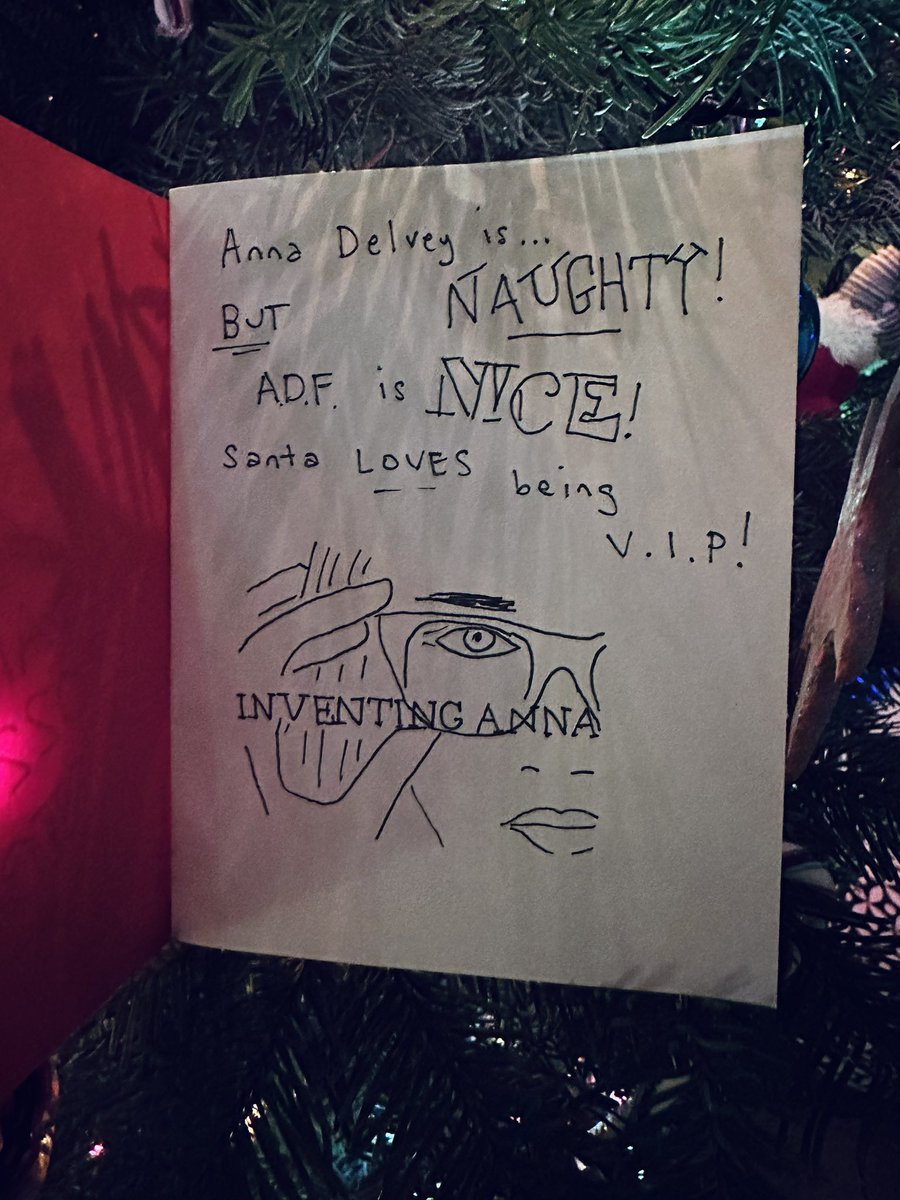 Anna Delvey is...
NAUGHTY!
BUT
A.D.F. is NICE!
Santa LOVES being
V.I.P!
INVENTING ANNA